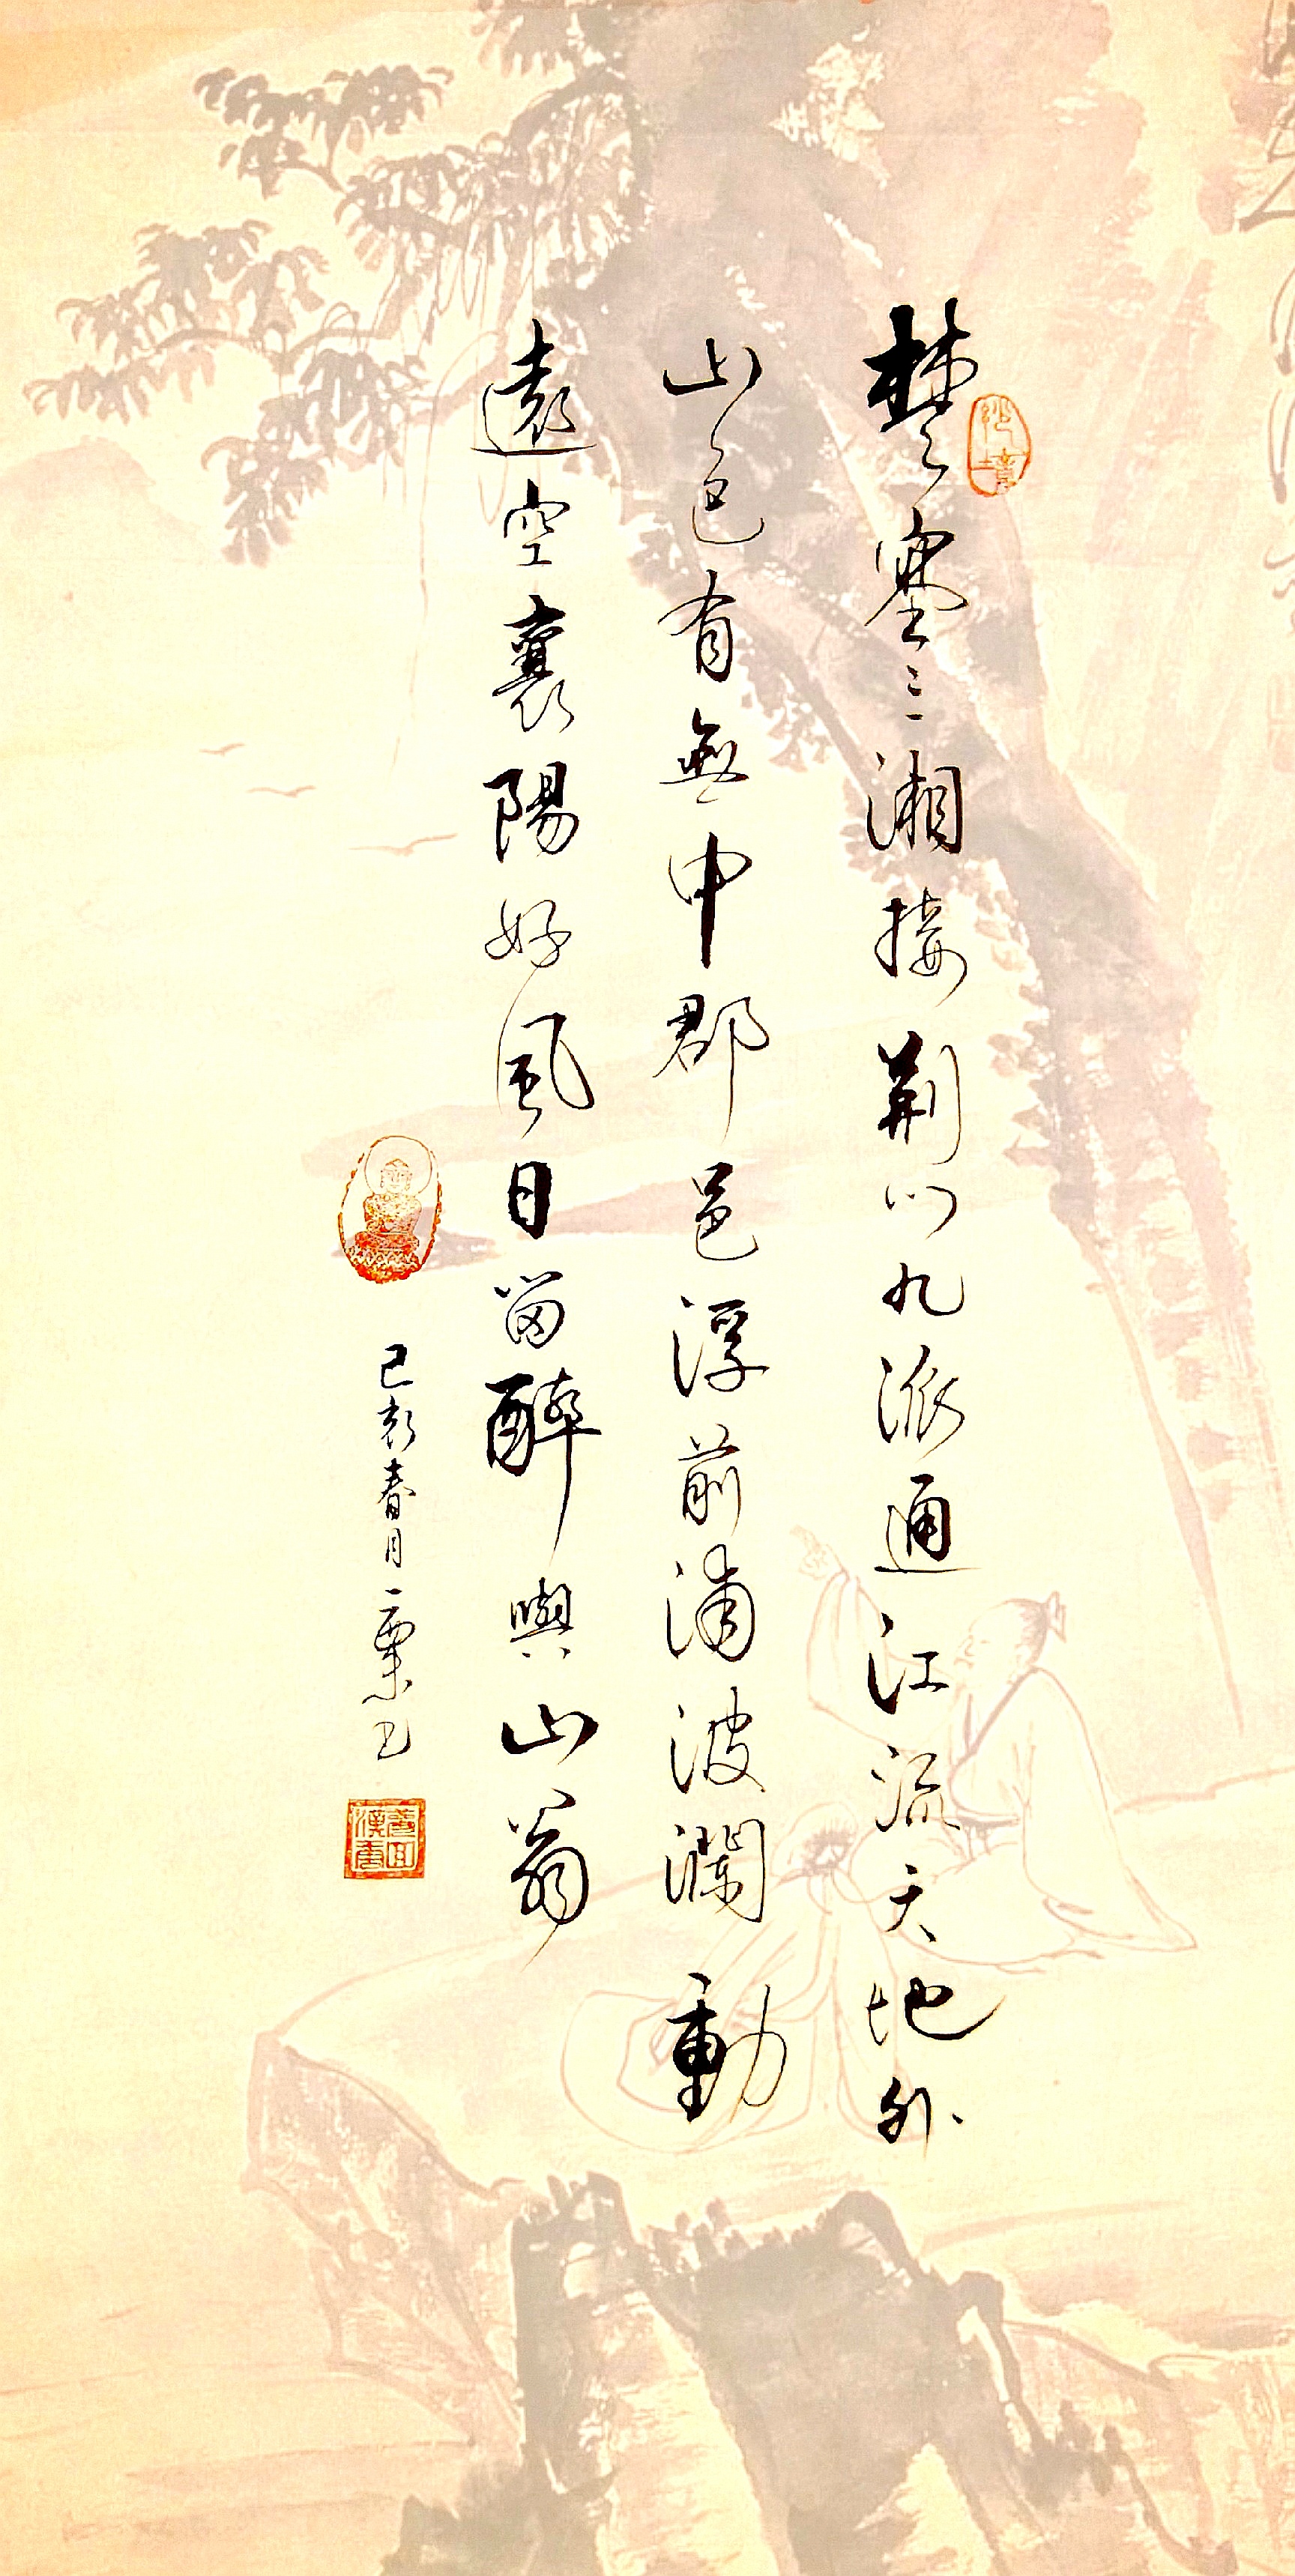 楚塞三湘接荊門九派通江流天地外
山色有無中郡邑浮前浦波瀾動
遠空襄陽好風日留醉與山翁
己亥春月一粟书